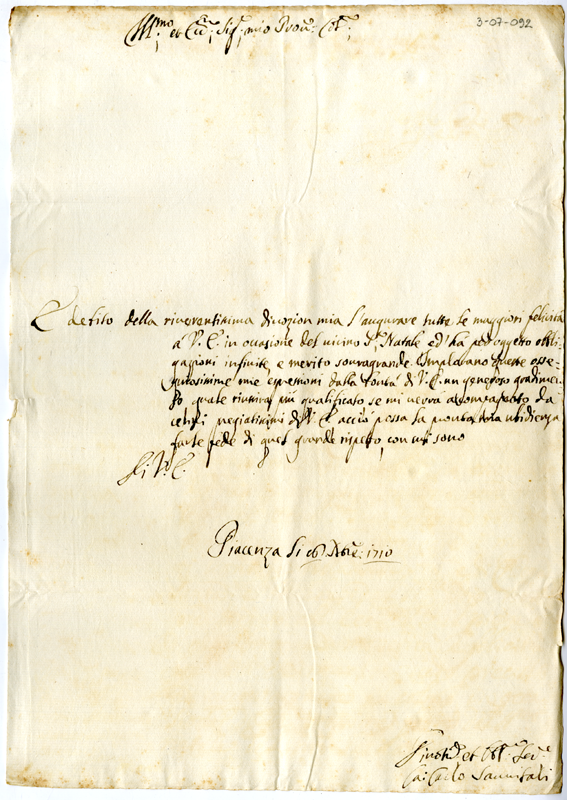 3-07-092
Ill.mo et Ecc.mo Sig.r mio Pron: Col.mo
È debito della riverentissima divozion mia l'augurare tutte le maggiori felicità
à V. E. in occasione del vicino S. Natale ed hà per oggetto obli-
gazioni infinite, e merito sovragrande. Implorano queste osse-
quiosissime mie espressioni dalla bontà di V. E. un generoso gradimen.
Lo quale più qualificato se mi verrà accompagnato da
di V. E. acciò possa la pronta mia ubidienza
farle fede di quel grande rispetto, con cui sono
Di V. E.
Piacenza li Xbre: 1710
et Obl. Ser.
Carlo Sanvitali